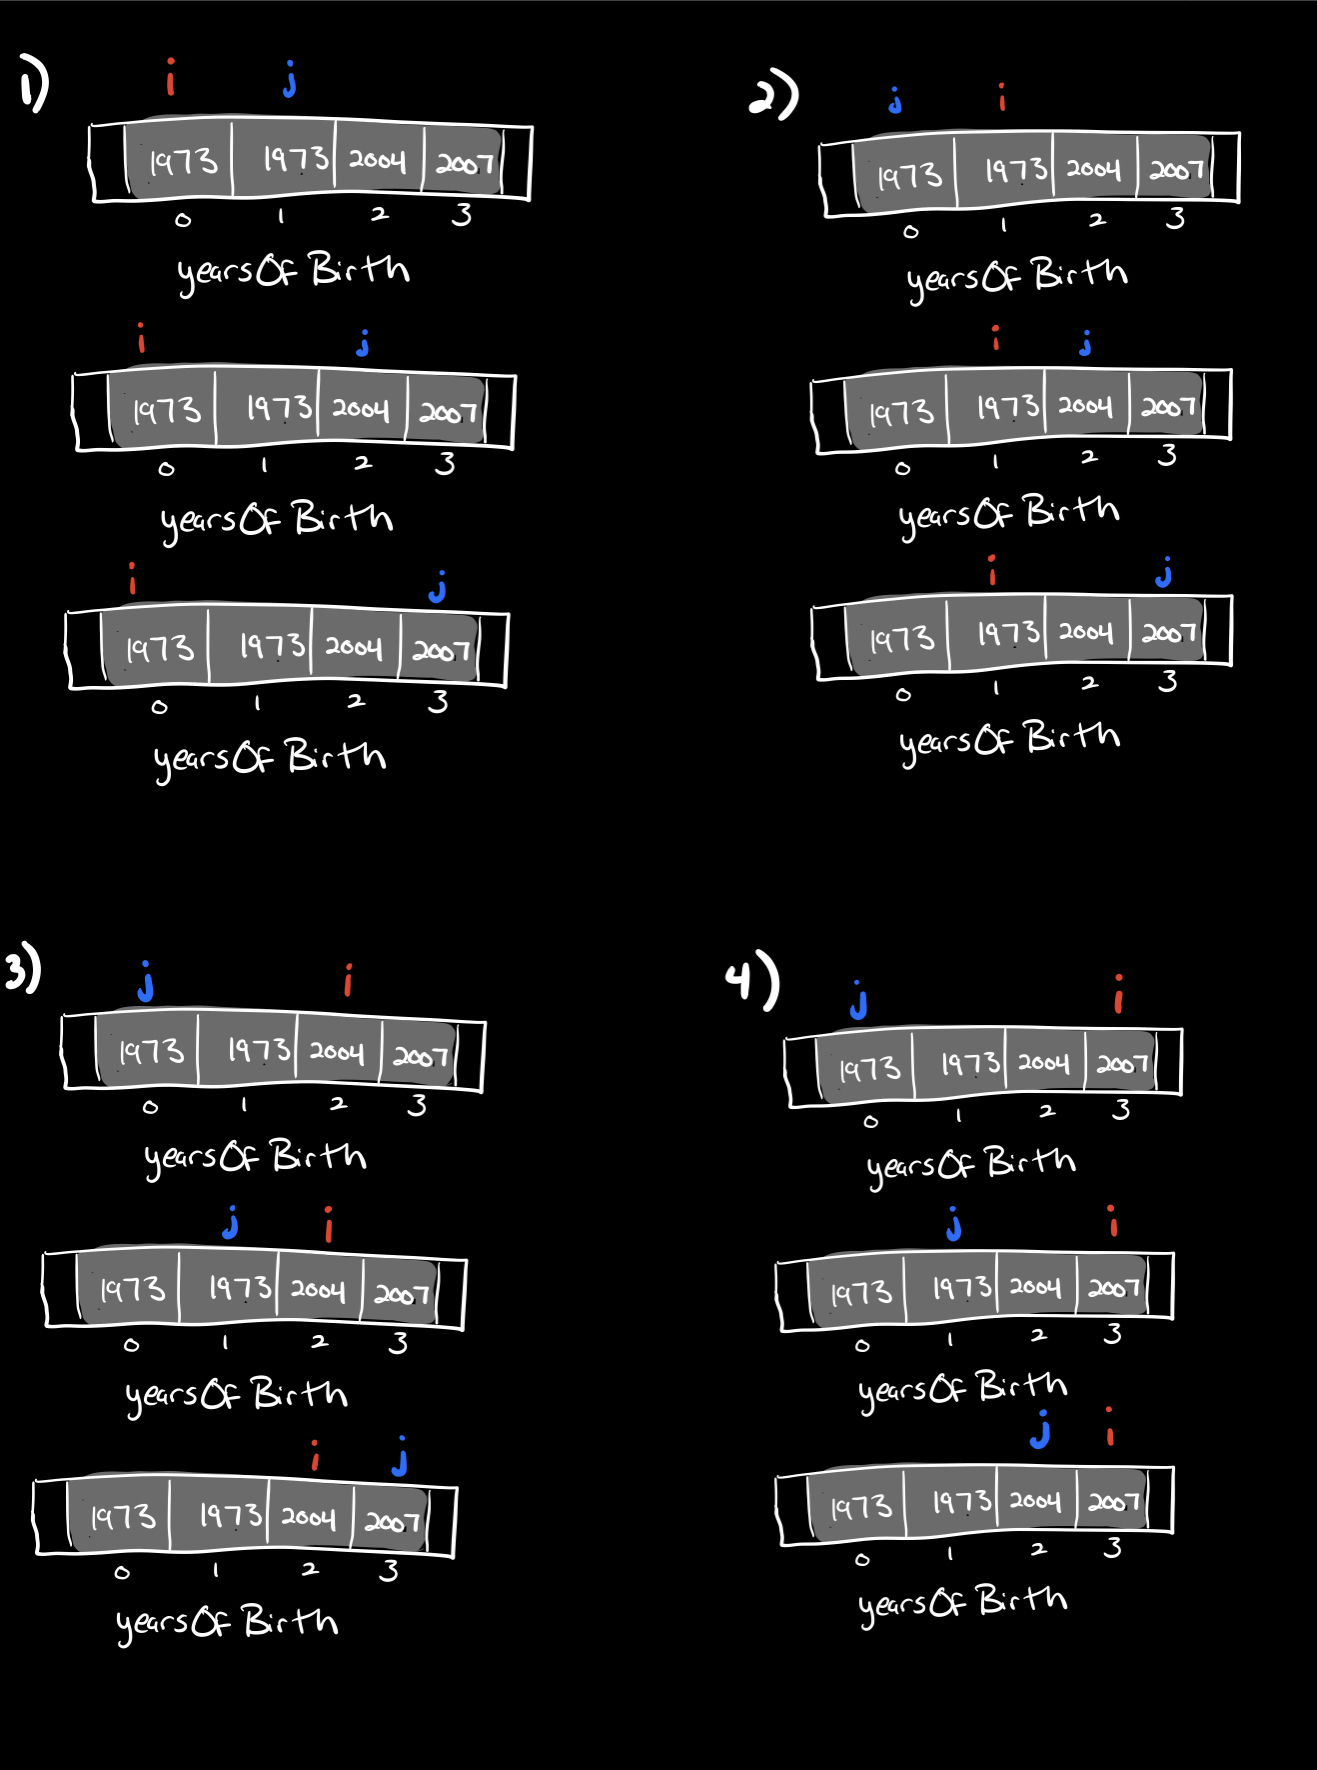 1)
i j
1973 1973 2004 2007
0 1 2 3
yearsOfBirth
i j
1973 1973 2004 2007
0 1 2 3
yearsOfBirth
i j
1973 1973 2004 2007
0 1 2 3
yearsOfBirth
2)
j i
1973 1973 2004 2007
0 1 2 3
yearsOfBirth
i j
1973 1973 2004 2007
0 1 2 3
yearsOfBirth
i j
1973 1973 2004 2007
0 1 2 3
yearsOfBirth
3)
j i
1973 1973 2004 2007
0 1 2 3
yearsOfBirth
j i
1973 1973 2004 2007
0 1 2 3
yearsOfBirth
i j
1973 1973 2004 2007
0 1 2 3
yearsOfBirth
4)
j i
1973 1973 2004 2007
0 1 2 3
yearsOfBirth
j i
1973 1973 2004 2007
0 1 2 3
yearsOfBirth
j i
1973 1973 2004 2007
0 1 2 3
yearsOfBirth